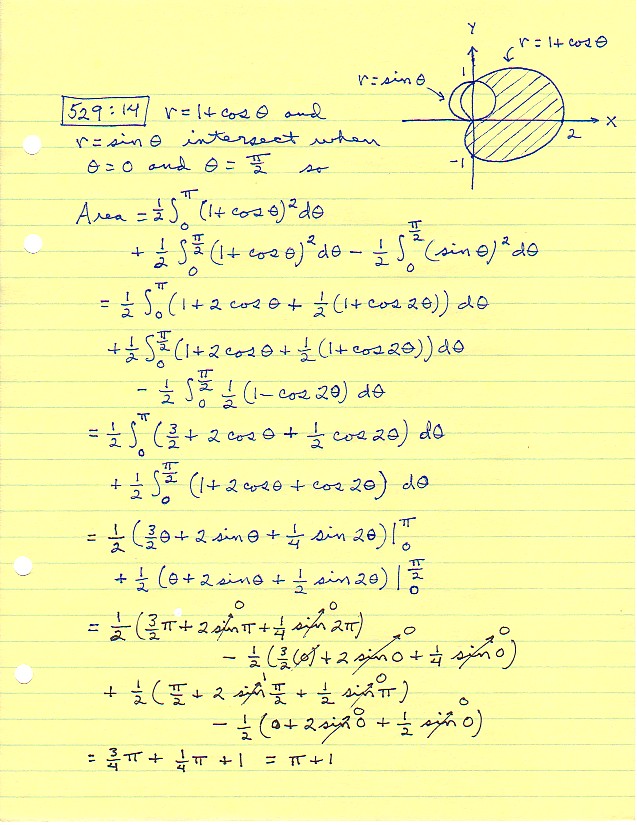 Y
r = 1 + cos θ
r = sin θ
1
X
2
-1
529:14 r = 1 + cos θ and
r = sin θ intersect when
θ = 0 and θ = π/2 so
Area = 1/2 ∫₀^π (1 + cos θ)² dθ
+ 1/2 ∫₀^{π/2} (1 + cos θ)² dθ − 1/2 ∫₀^{π/2} (sin θ)² dθ
= 1/2 ∫₀^π (1 + 2 cos θ + 1/2 (1 + cos 2θ)) dθ
+ 1/2 ∫₀^{π/2} (1 + 2 cos θ + 1/2 (1 + cos 2θ)) dθ
− 1/2 ∫₀^{π/2} 1/2 (1 − cos 2θ) dθ
= 1/2 ∫₀^π (3/2 + 2 cos θ + 1/2 cos 2θ) dθ
+ 1/2 ∫₀^{π/2} (1 + 2 cos θ + cos 2θ) dθ
= 1/2 (3/2 θ + 2 sin θ + 1/4 sin 2θ) |₀^π
+ 1/2 (θ + 2 sin θ + 1/2 sin 2θ) |₀^{π/2}
= 1/2 (3/2 π + 2 sin π⁰ + 1/4 sin 2π⁰)
− 1/2 (3/2 (0) + 2 sin 0⁰ + 1/4 sin 0⁰)
+ 1/2 (π/2 + 2 sin π/2¹ + 1/2 sin π⁰)
− 1/2 (0 + 2 sin 0⁰ + 1/2 sin 0⁰)
= 3/4 π + 1/4 π + 1 = π + 1